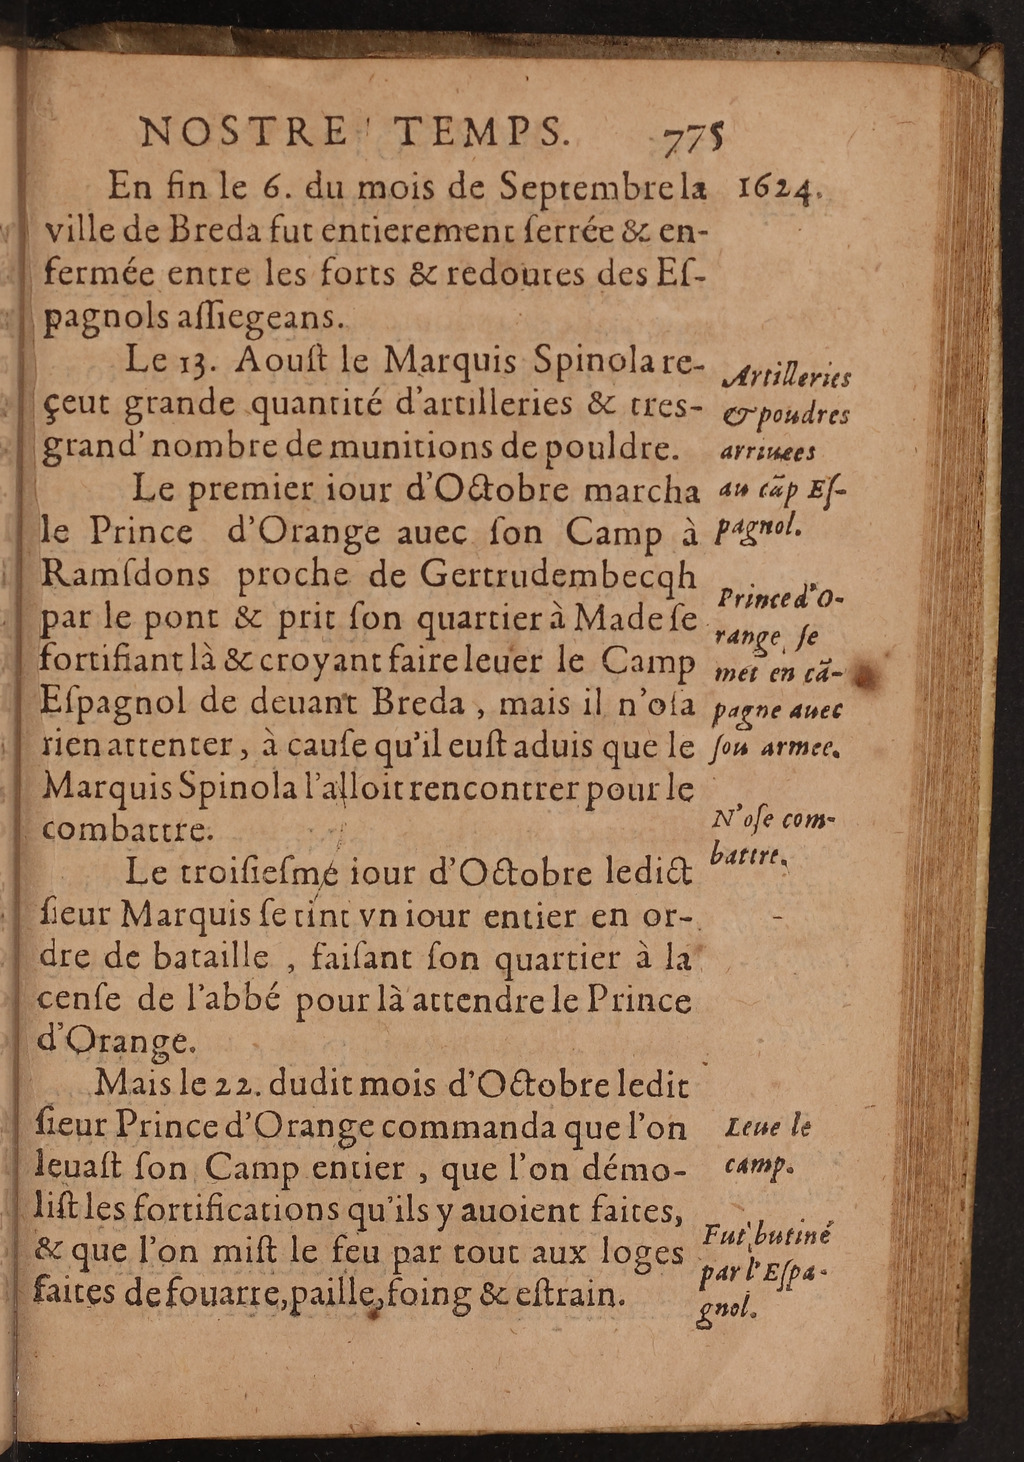 NOSTRE TEMPS. 775
En fin le 6. du mois de Septembre la 1624.
ville de Breda fut entierement ſerrée & en-
fermée entre les forts & redoutes des Eſ-
pagnols aſſiegeans.
Le 13. Aouſt le Marquis Spinola re-
çeut grande quantité d'artilleries & tres-
grand' nombre de munitions de pouldre.
Artilleries
& poudres
arriuees
au cãp Eſ-
pagnol.
Le premier iour d'Octobre marcha
le Prince d'Orange auec ſon Camp à
Ramſdons proche de Gertrudembecqh
par le pont & prit ſon quartier à Made ſe
fortifiant là & croyant faire leuer le Camp
Eſpagnol de deuant Breda, mais il n'oſa
rien attenter, à cauſe qu'il euſt aduis que le
Marquis Spinola l'alloit rencontrer pour le
combattre.
Prince d'O-
range ſe
met en cã-
pagne auec
ſou armee.
N'oſe com-
battre.
Le troiſieſme iour d'Octobre ledict
ſieur Marquis ſe tint vn iour entier en or-
dre de bataille, faiſant ſon quartier à la
cenſe de l'abbé pour là attendre le Prince
d'Orange.
Mais le 22. dudit mois d'Octobre ledit
ſieur Prince d'Orange commanda que l'on
leuaſt ſon Camp entier, que l'on démo-
liſt les fortifications qu'ils y auoient faites,
& que l'on miſt le feu par tout aux loges
faites de fouarre, paille, foing & eſtrain.
Leue le
camp.
Fut butiné
par l'Eſpa-
gnol.